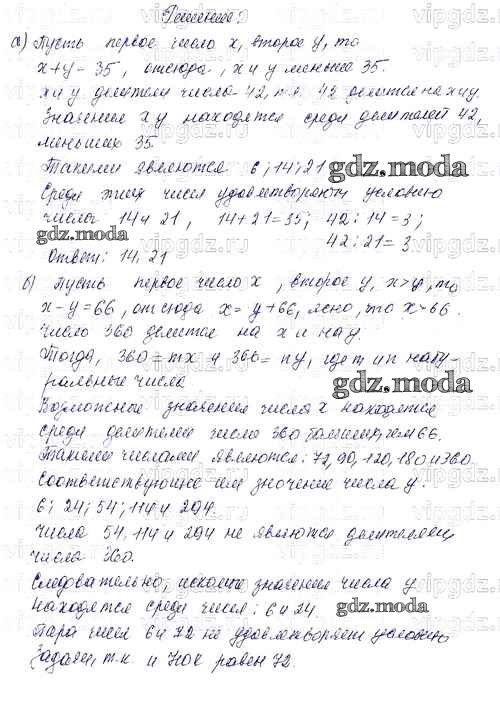 Решение:
а) Пусть первое число x, второе y, то
x+y=35, отсюда, x и y меньше 35.
x и y делители числа 42, т.к. 42 делится на x и y.
Значение x y находятся среди делителей 42,
меньших 35.
Такими являются 6; 14; 21
gdz.moda
Среди этих чисел удовлетворяют условию
числа 14 и 21, 14+21=35; 42:14=3;
gdz.moda
42:21=3
Ответ: 14, 21
б) Пусть первое число x, второе y, x>y, то
x-y=66, отсюда x=y+66, ясно, что x>66.
Число 360 делится на x и на y.
Тогда, 360=mx и 366=ny, где m и n нату-
ральные числа
gdz.moda
Возможное значением числа x находятся
среди делителей число 360 больших, чем 66.
Такими числами являются: 72, 90, 120, 180 и 360
Соответствующие им значение числа y:
6; 24; 54; 114 и 294.
Числа 54, 114 и 294 не являются делителями
числа 360.
Следовательно, искомые значения числа y
находятся среди чисел: 6 и 24.
gdz.moda
Пара чисел 6 и 72 не удовлетворяет условию
задачи, т.к. и НОК равен 72.